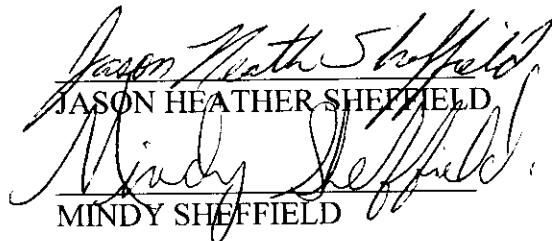 Jason Heath Sheffield
JASON HEATHER SHEFFIELD
Mindy Sheffield
MINDY SHEFFIELD